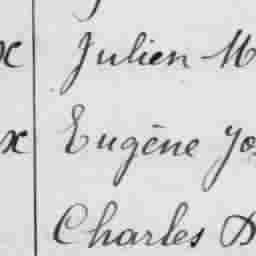 x Julien M
x Eugène Jos
Charles A